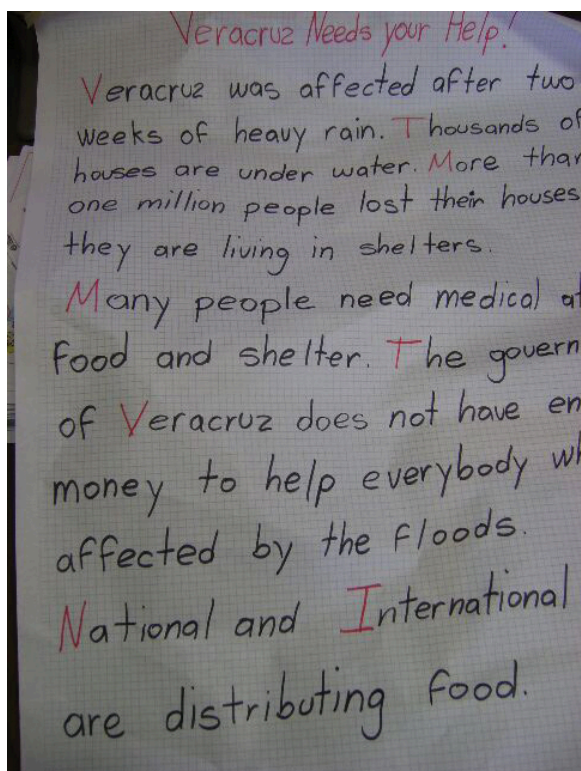 Veracruz Needs your Help!
Veracruz was affected after two
weeks of heavy rain. Thousands of
houses are under water. More than
one million people lost their houses
they are living in shelters.
Many people need medical at
food and shelter. The govern
of Veracruz does not have en
money to help everybody wh
affected by the floods.
National and International
are distributing food.